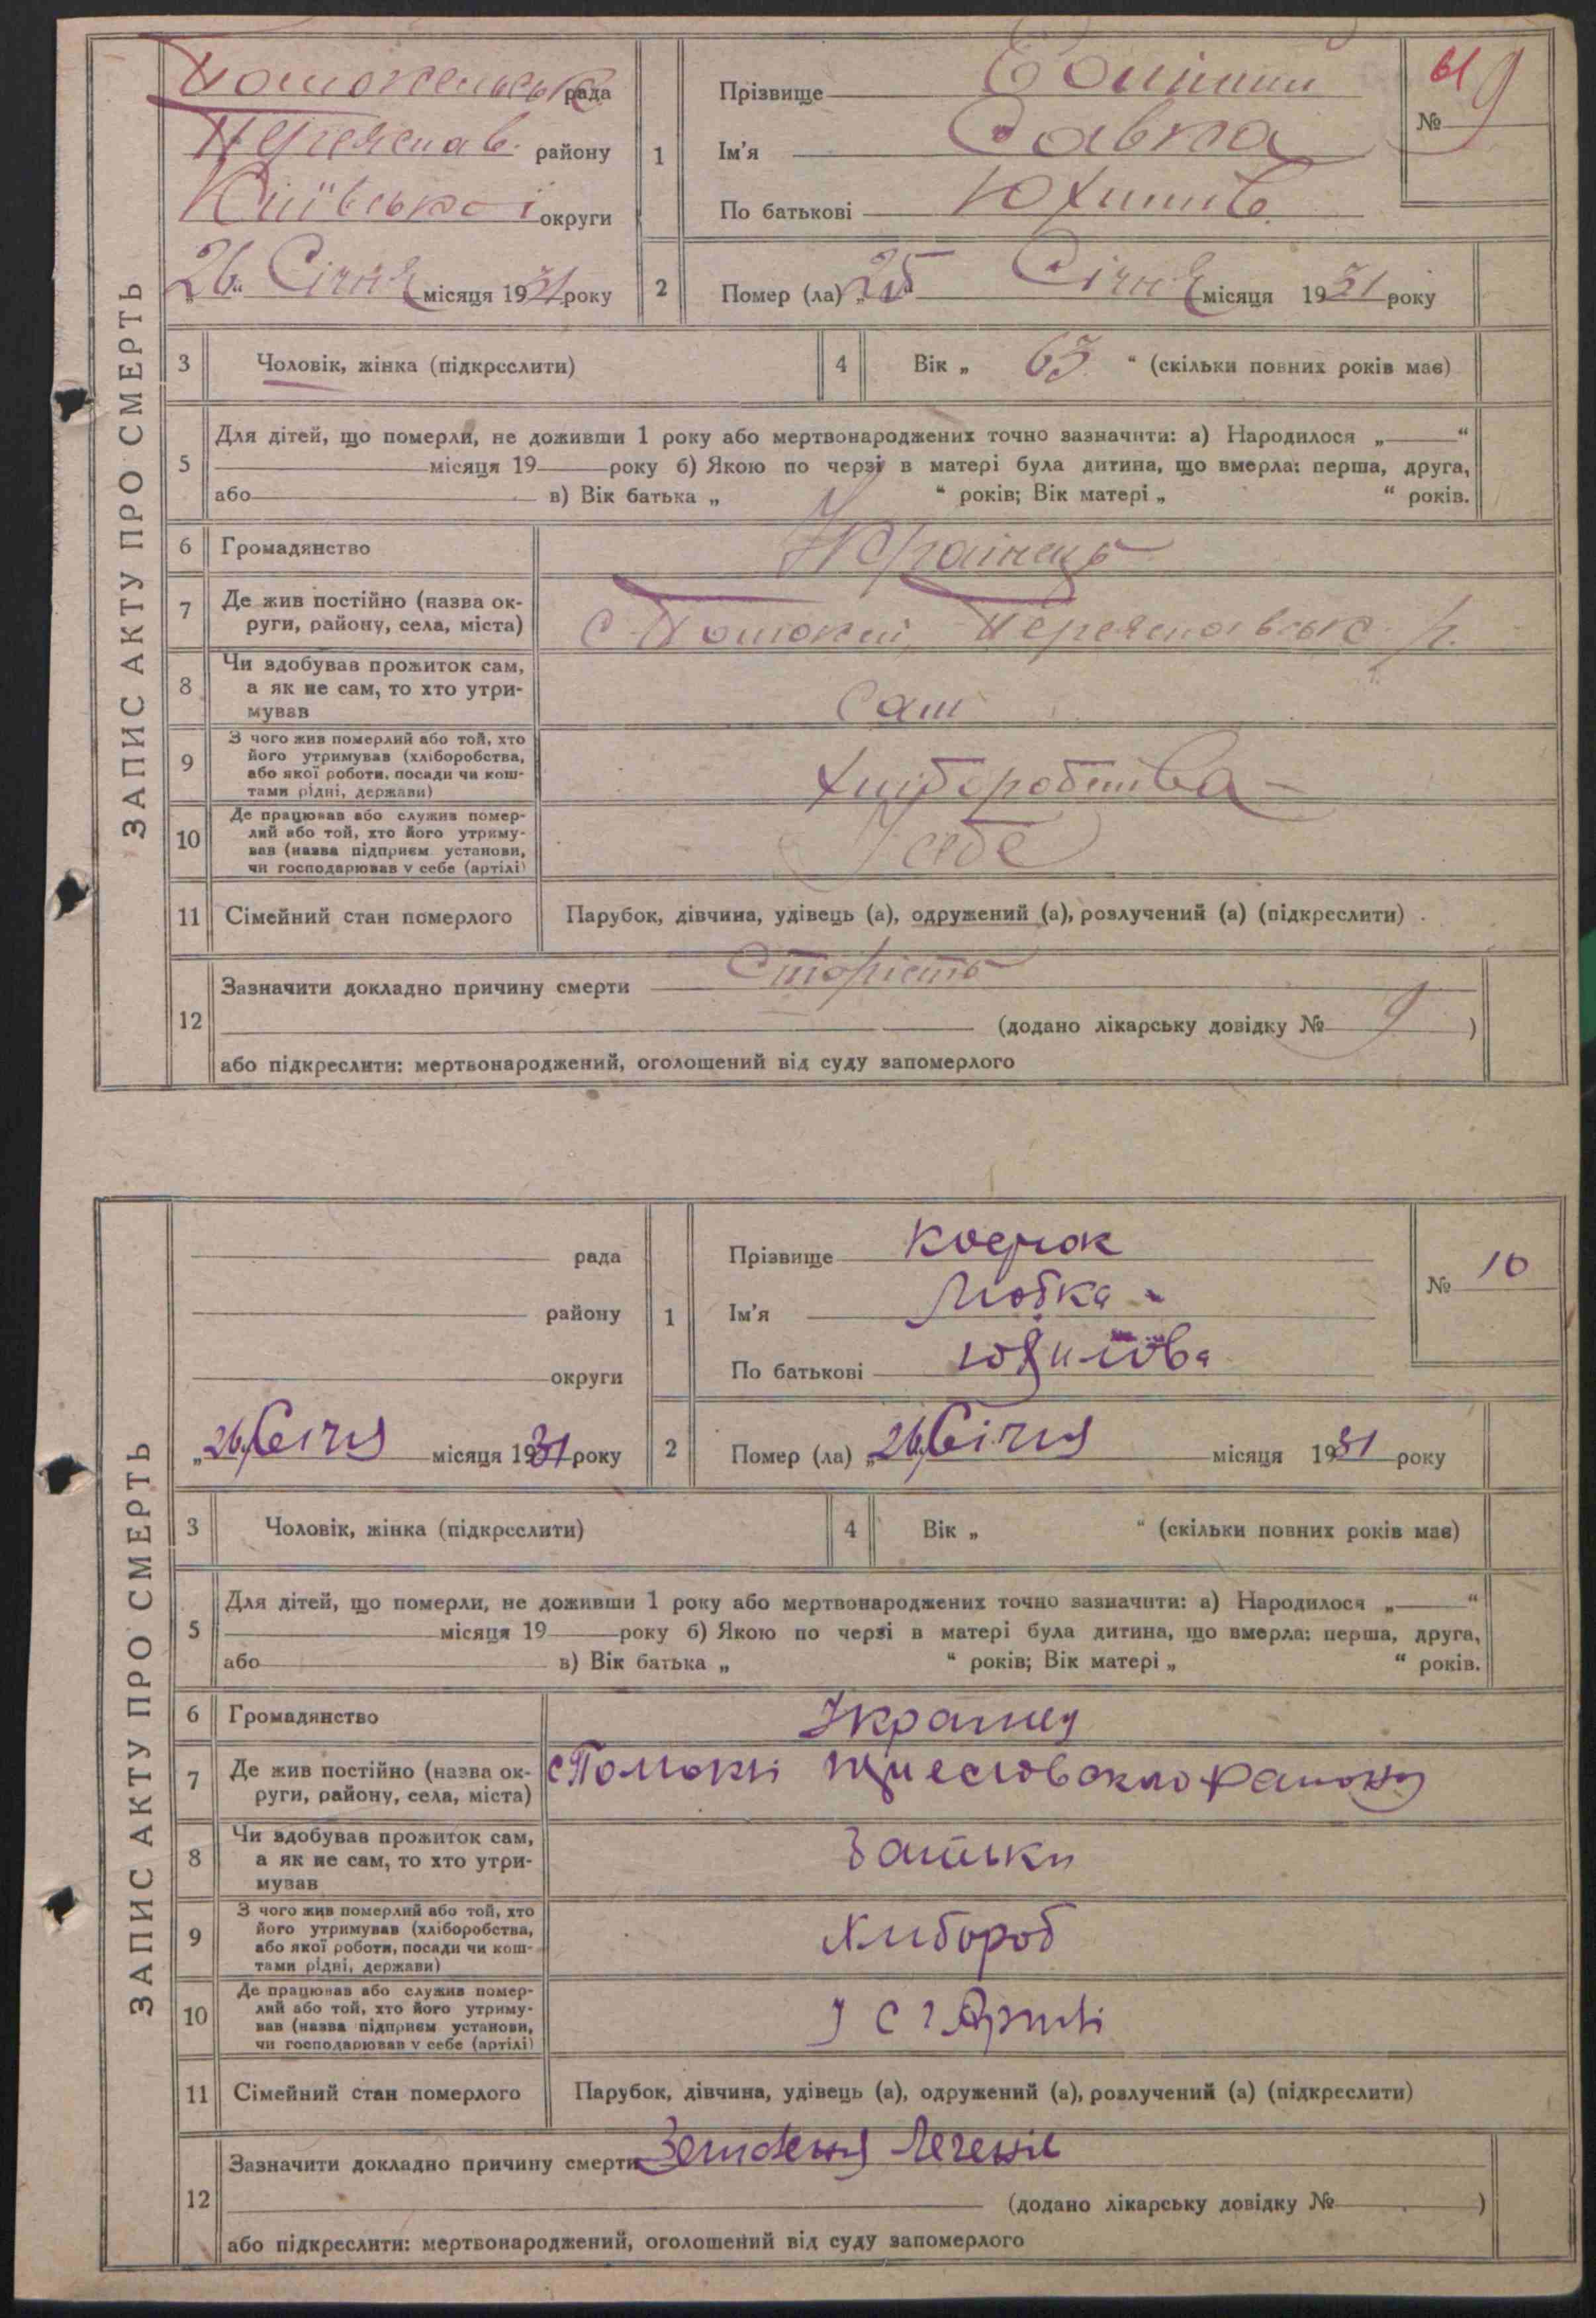 ЗАПИС АКТУ ПРО СМЕРТЬ
рада
Переяслав. району
Київської округи
26 Січня місяця 1931 року
1
Прізвище
Ім'я Савка
По батькові Юхимів
№ 9
61
2
Помер (ла) „25 Січня місяця 1931 року
3 Чоловік, жінка (підкреслити)
4 Вік „ 63 “ (скільки повних років має)
5 Для дітей, що померли, не доживши 1 року або мертвонароджених точно зазначити: а) Народилося „ “
місяця 19 року б) Якою по черзі в матері була дитина, що вмерла: перша, друга,
або в) Вік батька „ “ років; Вік матері „ “ років.
6 Громадянство Українець
7 Де жив постійно (назва ок-
руги, району, села, міста)
с. Помоклі, Переяславськ. р.
8 Чи здобував прожиток сам,
а як не сам, то хто утри-
мував
Сам
9 З чого жив померлий або той, хто
його утримував (хліборобства,
або якої роботи, посади чи кош-
тами рідні, держави)
Хліборобства
10 Де працював або служив помер-
лий або той, хто його утриму-
вав (назва підприєм установи,
чи господарював у себе (артілі)
У себе
11 Сімейний стан померлого Парубок, дівчина, удівець (а), одружений (а), розлучений (а) (підкреслити)
12 Зазначити докладно причину смерти Старість
(додано лікарську довідку № 9 )
або підкреслити: мертвонароджений, оголошений від суду запомерлого
ЗАПИС АКТУ ПРО СМЕРТЬ
рада
району
округи
„26„ Січня місяця 1931 року
1
Прізвище
Ім'я Любка
По батькові
№ 10
2
Помер (ла) „26„ Січня місяця 1931 року
3 Чоловік, жінка (підкреслити)
4 Вік „ “ (скільки повних років має)
5 Для дітей, що померли, не доживши 1 року або мертвонароджених точно зазначити: а) Народилося „ “
місяця 19 року б) Якою по черзі в матері була дитина, що вмерла: перша, друга,
або в) Вік батька „ “ років; Вік матері „ “ років.
6 Громадянство
7 Де жив постійно (назва ок-
руги, району, села, міста)
с Помоклі
8 Чи здобував прожиток сам,
а як не сам, то хто утри-
мував
Батьки
9 З чого жив померлий або той, хто
його утримував (хліборобства,
або якої роботи, посади чи кош-
тами рідні, держави)
Хлибороб
10 Де працював або служив помер-
лий або той, хто його утриму-
вав (назва підприєм установи,
чи господарював у себе (артілі)
У с г Артилі
11 Сімейний стан померлого Парубок, дівчина, удівець (а), одружений (а), розлучений (а) (підкреслити)
12 Зазначити докладно причину смерти
(додано лікарську довідку № )
або підкреслити: мертвонароджений, оголошений від суду запомерлого